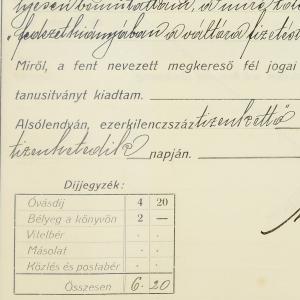 "fedezethiányában a váltóra fizetést
Miről, a fent nevezett megkereső fél jogai
tanusitványt kiadtam.
Alsólendván, ezerkilenczszáz tizenkettő
tizenkettedik napján.
Díjjegyzék:
Óvásdíj 4 20
Bélyeg a könyvön 2 —
Vitelbér . .
Másolat . .
Közlés és postabér . .
Összesen 6. 20